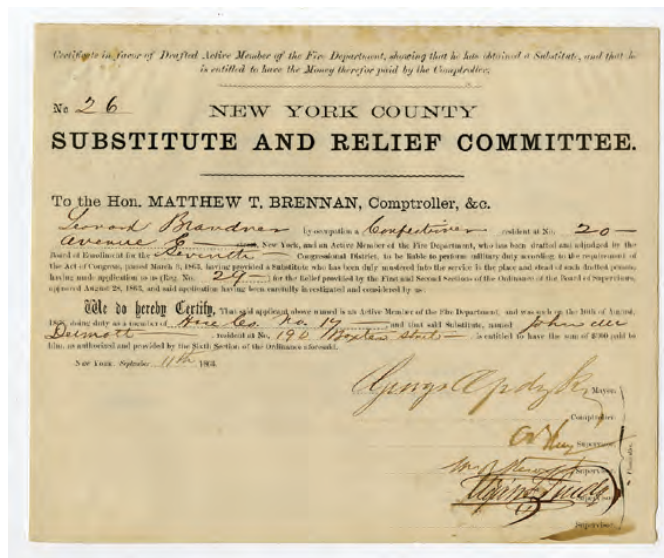 Certificate in favor of Drafted Active Member of the Fire Department, showing that he has obtained a Substitute, and that he
is entitled to have the Money therefor paid by the Comptroller.
No 26
NEW YORK COUNTY
SUBSTITUTE AND RELIEF COMMITTEE.
To the Hon. MATTHEW T. BRENNAN, Comptroller, &c.
Leonard Brandner by occupation a Confectioner resident at No. 20
avenue New York, and an Active Member of the Fire Department, who has been drafted and adjudged by the
Board of Enrollment for the Seventh Congressional District, to be liable to perform military duty according to the requirement of
the Act of Congress, passed March 3, 1863, having provided a Substitute who has been duly mustered into the service in the place and stead of such drafted person,
having made application to us (Reg. No. 29 ) for the Relief provided by the First and Second Sections of the Ordinance of the Board of Supervisors,
approved August 28, 1863, and said application having been carefully investigated and considered by us:
We do hereby Certify, That said applicant above named is an Active Member of the Fire Department, and was such on the 10th of August,
1863, doing duty as a member of Hose Co. No. 14 and that said Substitute, named John Mc
Dermott resident at No. 190 Baxter Street is entitled to have the sum of $300 paid to
him, as authorized and provided by the Sixth Section of the Ordinance aforesaid.
New York, September 11th 1863.
George Opdyke Mayor.
Comptroller.
Supervisor.
Supervisor.
Supervisor.
Supervisor.
Committee.